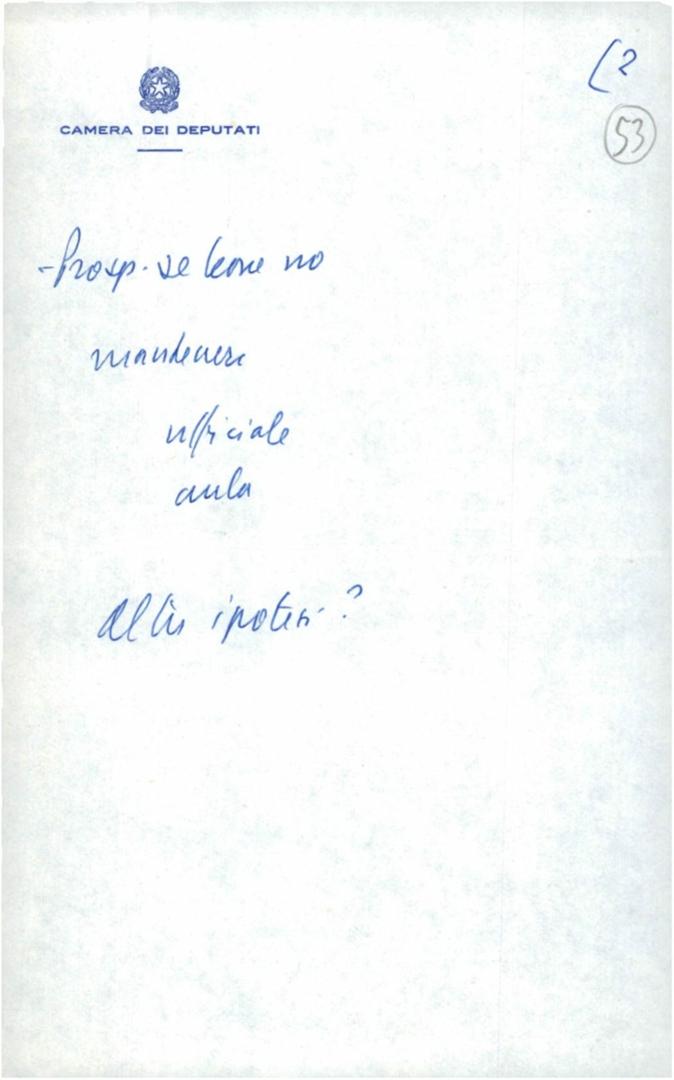 (2
53
CAMERA DEI DEPUTATI
- Prosp. se Leone no
mantenere
ufficiale
aula
Altre ipotesi?